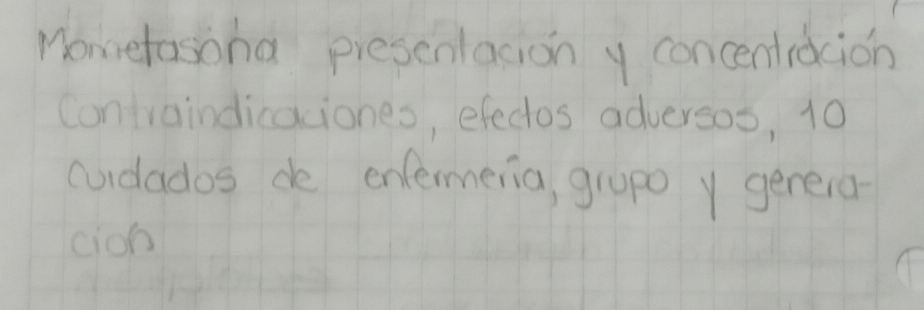 Mometasona presentación y concentración
Contraindicaciones, efectos adversos, 10
cuidados de enfermería, grupo y genera-
cion